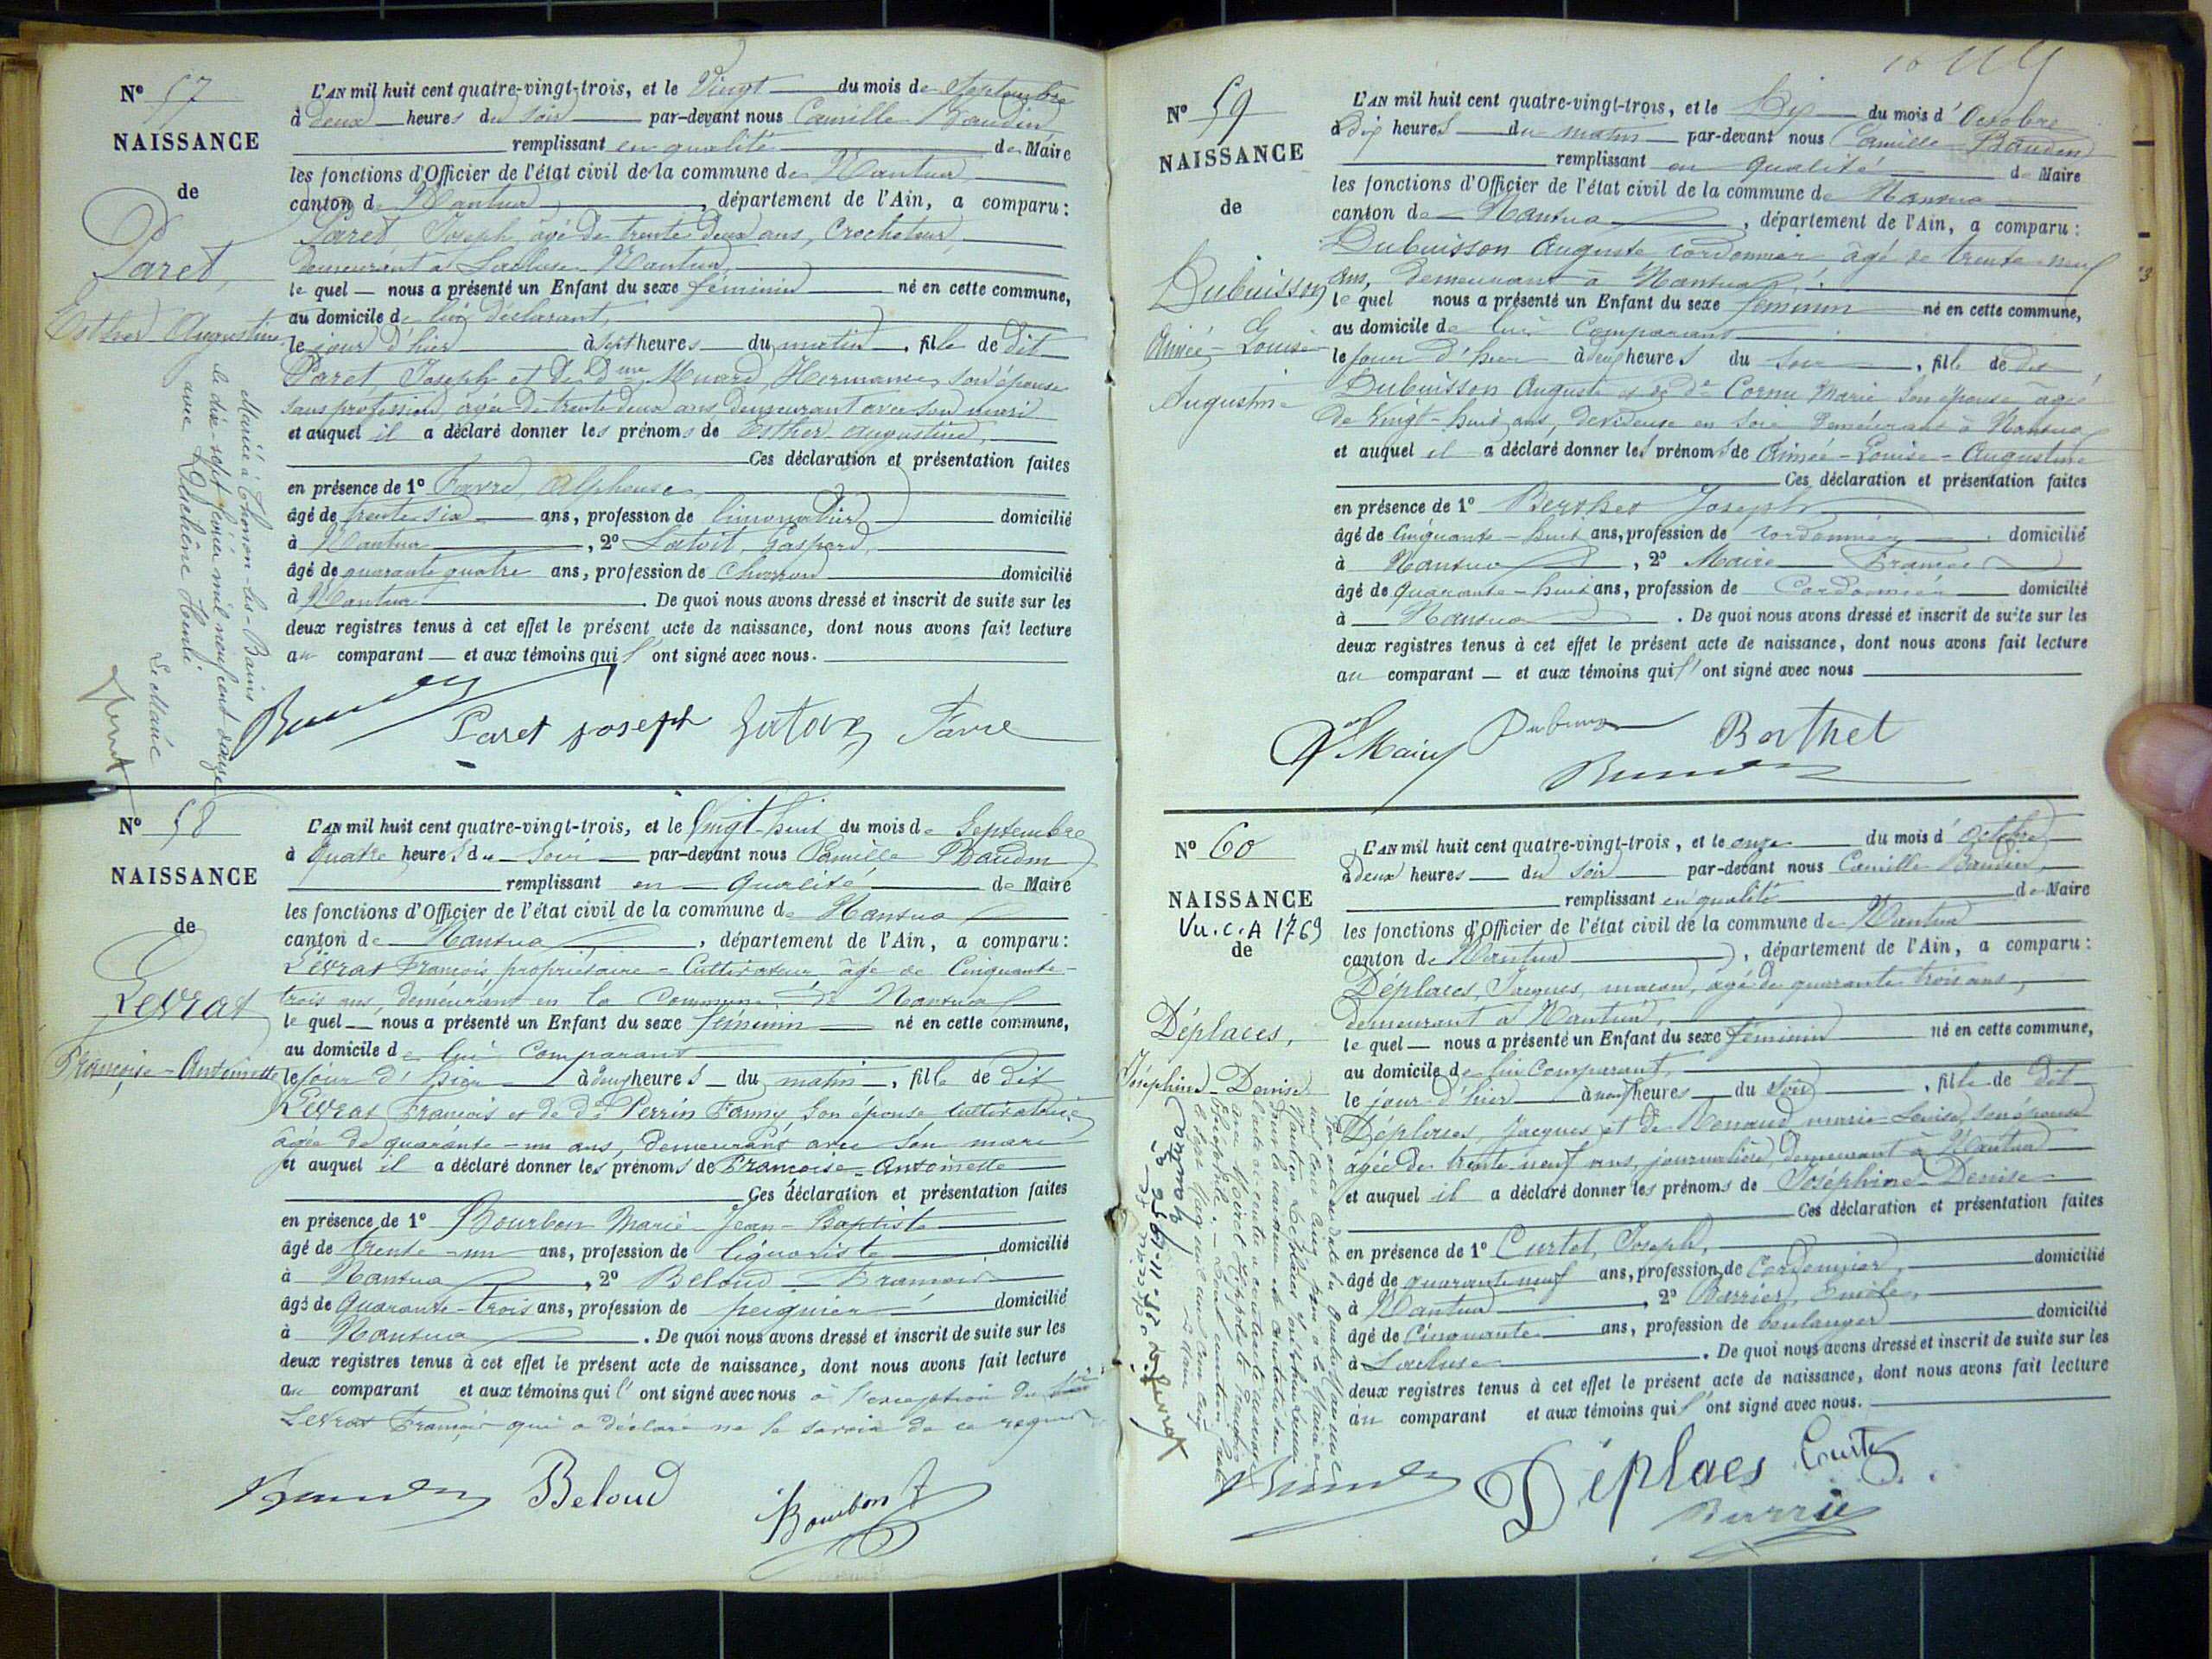 N° 57
NAISSANCE
de
Paret,
Esther Augustine
L'AN mil huit cent quatre-vingt-trois, et le Vingt du mois de Septembre
à deux heures du soir par-devant nous Camille Baudin
remplissant en qualité de Maire
les fonctions d'Officier de l'état civil de la commune de Nantua
canton de Nantua, département de l'Ain, a comparu:
Paret, Joseph, âgé de trente deux ans, Crocheteur,
demeurant à Lacluse Nantua,
le quel nous a présenté un Enfant du sexe féminin né en cette commune,
au domicile de lui déclarant,
le jour d'hier à sept heures du matin, fille de dit
Paret, Joseph et de Dme Muard, Hermance, son épouse
sans profession, âgée de trente deux ans demeurant avec son mari
et auquel il a déclaré donner les prénoms de Esther-Augustine,
Ces déclaration et présentation faites
en présence de 1° Favre, Alphonse,
âgé de trente six ans, profession de limonadier domicilié
à Nantua, 2° Latoit, Gaspard,
âgé de quarante quatre ans, profession de Charron domicilié
à Nantua. De quoi nous avons dressé et inscrit de suite sur les
deux registres tenus à cet effet le présent acte de naissance, dont nous avons fait lecture
au comparant et aux témoins qui l'ont signé avec nous.
Mariée à Thonon-les-Bains
le dix-sept février mil neuf cent seize
avec Duchêne Henri.
Le Maire
Paret joseph Favre
N° 58
NAISSANCE
de
Levrat
Françoise-Antoinette
L'AN mil huit cent quatre-vingt-trois, et le Vingt-huit du mois de Septembre
à Quatre heures du Soir par-devant nous Camille Baudin
remplissant en Qualité de Maire
les fonctions d'Officier de l'état civil de la commune de Nantua
canton de Nantua, département de l'Ain, a comparu:
Levrat François propriétaire-Cultivateur âgé de Cinquante-
trois ans, demeurant en la Commune de Nantua
le quel nous a présenté un Enfant du sexe féminin né en cette commune,
au domicile de lui Comparant
le jour d'hier à deux heures du matin, fille de dit
Levrat François et de de Perrin Fanny Son épouse cultivatrice
âgée de quarante-un ans, demeurant avec Son mari
et auquel il a déclaré donner les prénoms de Françoise-Antoinette
Ces déclaration et présentation faites
en présence de 1° Bourbon Marie Jean-Baptiste
âgé de trente-un ans, profession de liquoriste domicilié
à Nantua, 2° Beloud François
âgé de Quarante-trois ans, profession de peignier domicilié
à Nantua. De quoi nous avons dressé et inscrit de suite sur les
deux registres tenus à cet effet le présent acte de naissance, dont nous avons fait lecture
au comparant et aux témoins qui l'ont signé avec nous à l'exception du
Levrat François qui a déclaré ne le savoir de ce requis
Beloud Bourbon
N° 59
NAISSANCE
de
Dubuisson
Aimée-Louise
Augustine
L'AN mil huit cent quatre-vingt-trois, et le Dix du mois d'Octobre
à dix heures du matin par-devant nous Camille Baudin
remplissant en Qualité de Maire
les fonctions d'Officier de l'état civil de la commune de Nantua
canton de Nantua, département de l'Ain, a comparu:
Dubuisson Auguste cordonnier âgé de trente-neuf
ans, demeurant à Nantua
le quel nous a présenté un Enfant du sexe féminin né en cette commune,
au domicile de lui Comparant
le jour d'hier à deux heures du Soir, fille de dit
Dubuisson Auguste et de de Cornu Marie Son épouse âgée
de Vingt-huit ans, devideuse en soie demeurant à Nantua
et auquel il a déclaré donner les prénoms de Aimée-Louise-Augustine
Ces déclaration et présentation faites
en présence de 1° Berthet Joseph
âgé de Cinquante-huit ans, profession de Cordonnier domicilié
à Nantua, 2° Maire François
âgé de Quarante-huit ans, profession de Cordonnier domicilié
à Nantua. De quoi nous avons dressé et inscrit de suite sur les
deux registres tenus à cet effet le présent acte de naissance, dont nous avons fait lecture
au comparant et aux témoins qui l'ont signé avec nous
Berthet
N° 60
NAISSANCE
Vu.C.A 1769
de
Déplaces,
Joséphine-Denise
L'AN mil huit cent quatre-vingt-trois, et le onze du mois d'Octobre
à deux heures du soir par-devant nous Camille Baudin
remplissant en qualité de Maire
les fonctions d'Officier de l'état civil de la commune de Nantua
canton de Nantua, département de l'Ain, a comparu:
Déplaces, Jacques, maçon, âgé de quarante trois ans,
demeurant à Nantua,
le quel nous a présenté un Enfant du sexe féminin né en cette commune,
au domicile de lui Comparant,
le jour d'hier à neuf heures du soir, fille de dit
Déplaces, Jacques et de Renaud marie-Louise, son épouse
âgée de trente neuf ans, journalière, demeurant à Nantua
et auquel il a déclaré donner les prénoms de Joséphine-Denise
Ces déclaration et présentation faites
en présence de 1° Curtet, Joseph,
âgé de quarante neuf ans, profession de Cordonnier, domicilié
à Nantua, 2° Barrier, Emile,
âgé de Cinquante ans, profession de boulanger domicilié
à Lacluse. De quoi nous avons dressé et inscrit de suite sur les
deux registres tenus à cet effet le présent acte de naissance, dont nous avons fait lecture
au comparant et aux témoins qui l'ont signé avec nous.
Déplaces Curtet